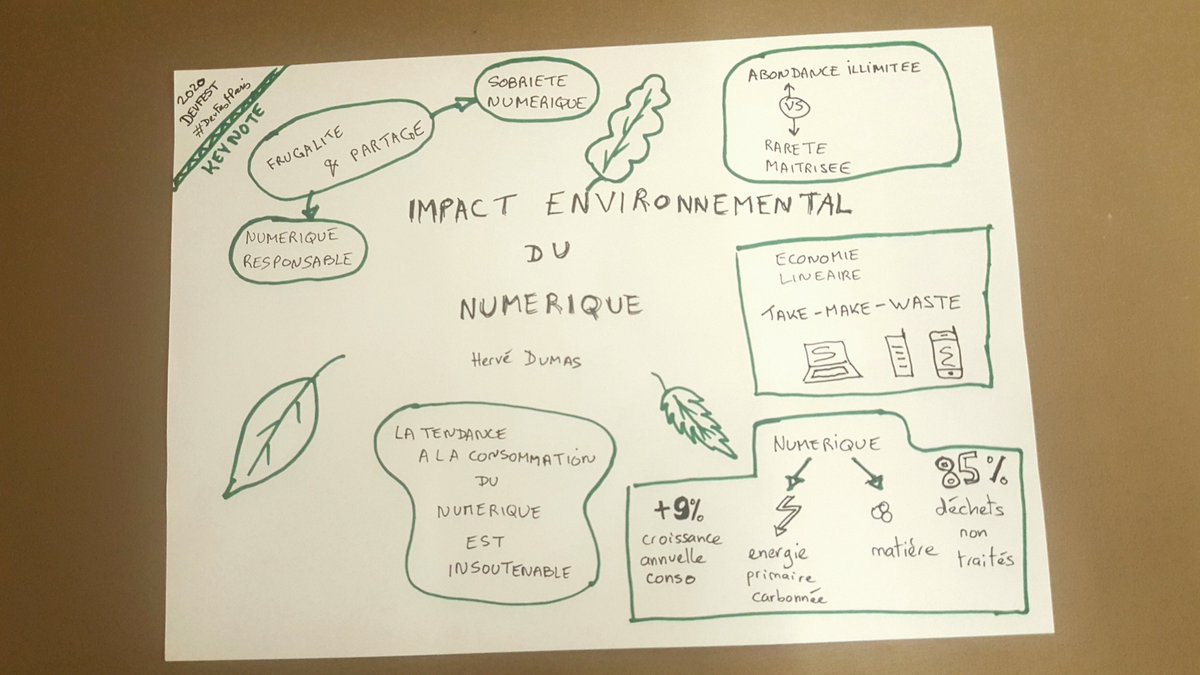 2020
DEVFEST
#DevFestParis
KEYNOTE
FRUGALITE
& PARTAGE
SOBRIETE
NUMERIQUE
NUMERIQUE
RESPONSABLE
ABONDANCE ILLIMITEE
VS
RARETE
MAITRISEE
IMPACT ENVIRONNEMENTAL
DU
NUMERIQUE
Hervé DUMAS
ECONOMIE
LINEAIRE
TAKE-MAKE-WASTE
LA TENDANCE
A LA CONSOMMATION
DU
NUMERIQUE
EST
INSOUTENABLE
NUMERIQUE
+9%
croissance
annuelle
conso
energie
primaire
carbonnée
matière
85%
déchets
non
traités